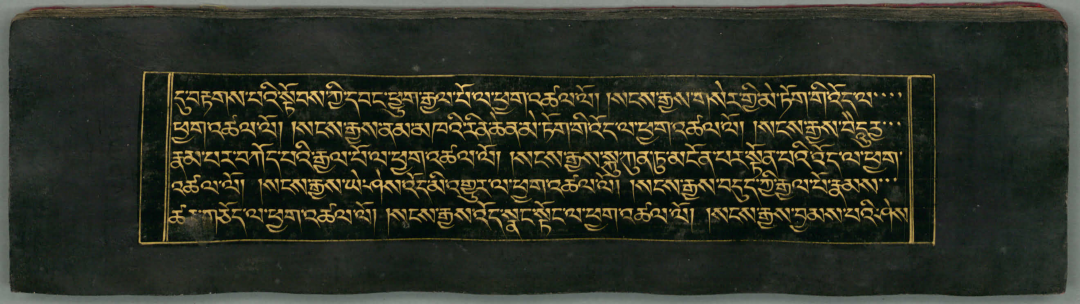 དུ་བརྟགས་པའི་སྟོབས་ཀྱི་དབང་ཕྱུག་རྒྱལ་པོ་ལ་ཕྱག་འཚལ་ལོ། །སངས་རྒྱས་གསེར་གྱི་མེ་ཏོག་གི་འོད་ལ་་་་
ཕྱག་འཚལ་ལོ། །སངས་རྒྱས་ནམ་མཁའི་རིན་ཆེན་མེ་ཏོག་གི་འོད་ལ་ཕྱག་འཚལ་ལོ། །སངས་རྒྱས་བཻ་ཌཱུརྱ་་་
རྣམ་པར་བཀོད་པའི་རྒྱལ་པོ་ལ་ཕྱག་འཚལ་ལོ། །སངས་རྒྱས་སྐུ་ཀུན་ཏུ་མངོན་པར་སྟོན་པའི་འོད་ལ་ཕྱག་
འཚལ་ལོ། །སངས་རྒྱས་ཡེ་ཤེས་འོད་མི་འགྱུར་ལ་ཕྱག་འཚལ་ལོ། །སངས་རྒྱས་བདུད་ཀྱི་རྒྱལ་པོ་རྣམས་་་
ཚར་གཅོད་ལ་ཕྱག་འཚལ་ལོ། །སངས་རྒྱས་འོད་སྣང་སྟོང་ལ་ཕྱག་འཚལ་ལོ། །སངས་རྒྱས་བྱམས་པའི་ཤེས